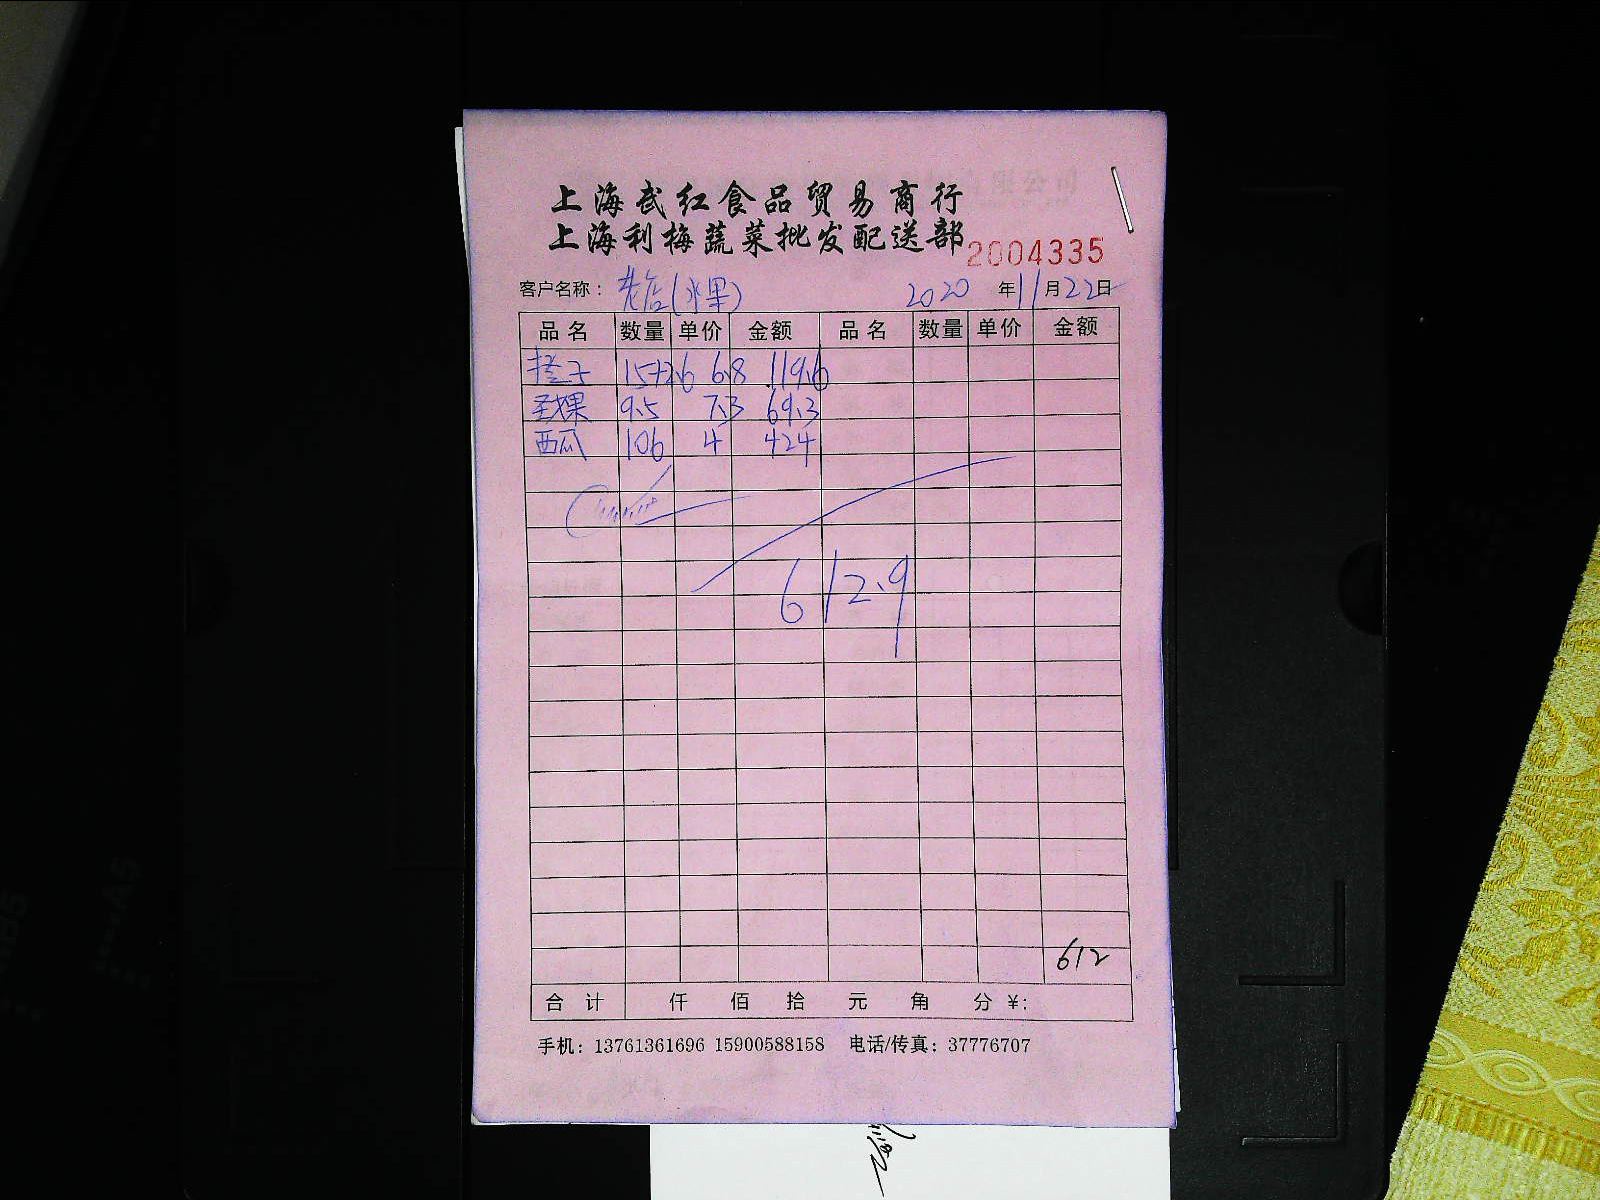 上海武红食品贸易商行
上海利梅蔬菜批发配送部 2004335
客户名称：老店(水果) 2020 年 11 月 22 日
品名 数量 单价 金额 品名 数量 单价 金额
橙子 15+2.6 6.8 119.6
圣果 9.5 7.3 69.3
西瓜 106 4 424
612.9
612
合计 仟 佰 拾 元 角 分 ¥：
手机：13761361696 15900588158 电话/传真：37776707